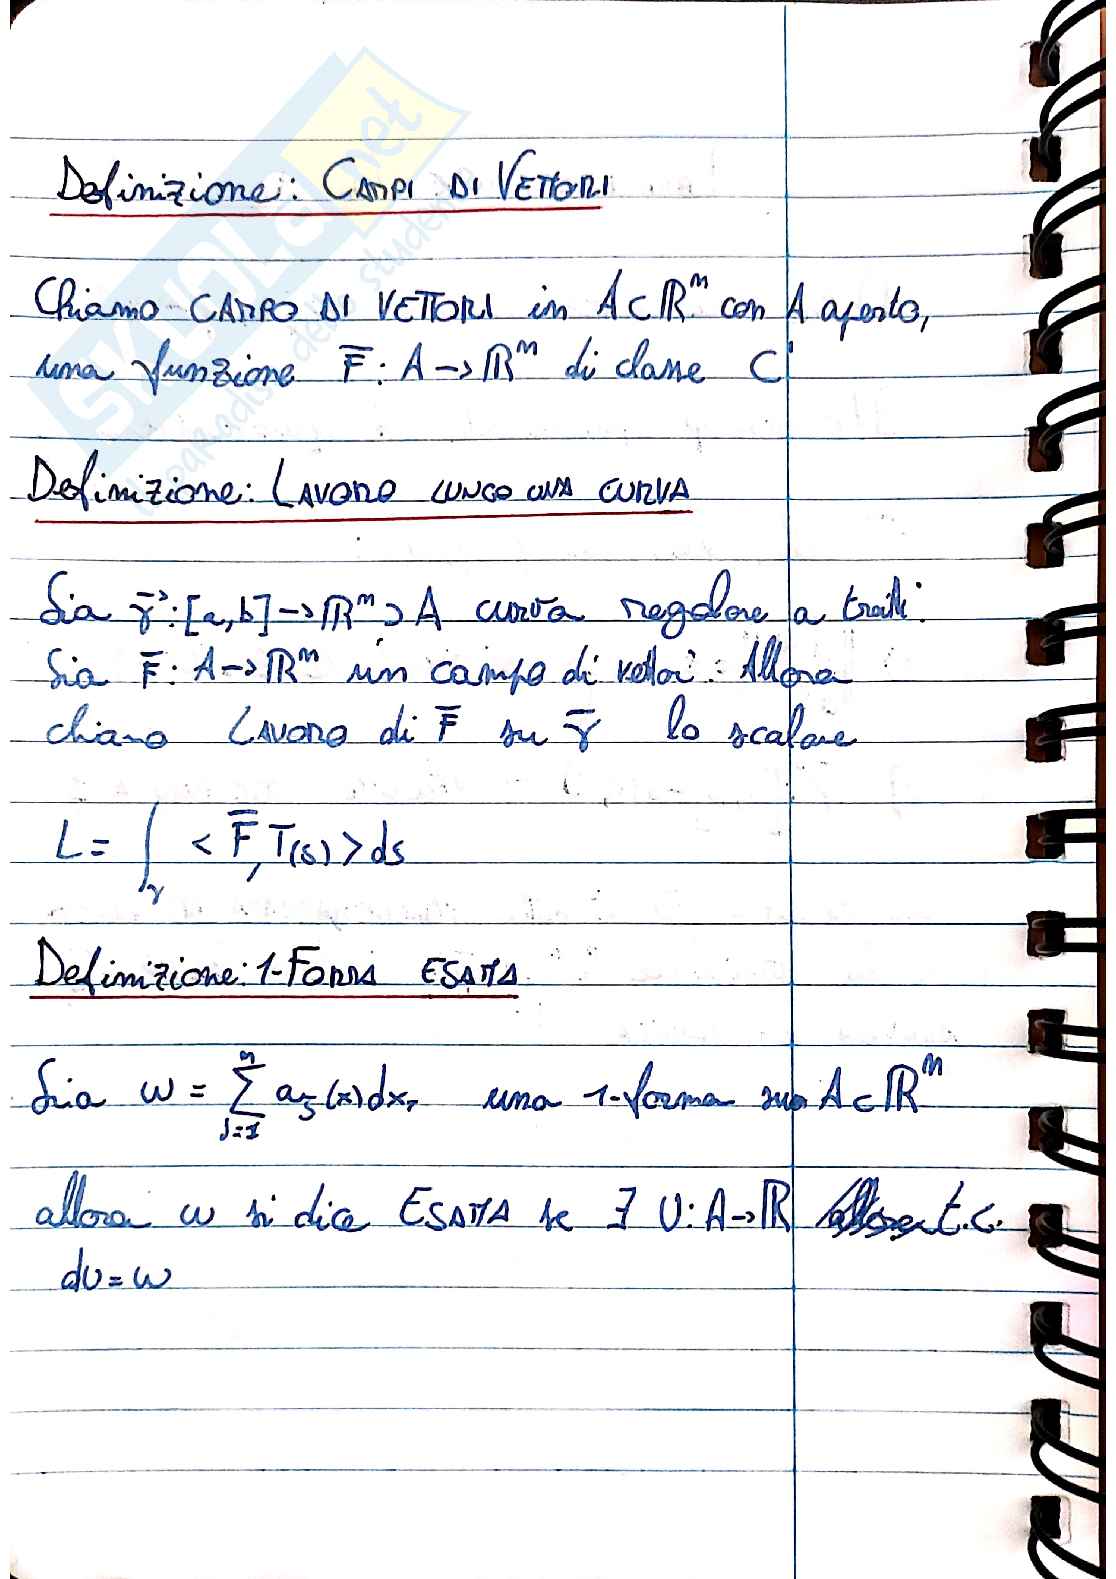 Definizione: CAMPI DI VETTORI
Chiamo CAMPO DI VETTORI in A⊂ℝⁿ con A aperto,
una funzione F̅: A→ℝⁿ di classe C¹
Definizione: LAVORO LUNGO UNA CURVA
Sia γ̅: [a,b]→ℝⁿ⊃A curva regolare a tratti.
Sia F̅: A→ℝⁿ un campo di vettori. Allora
chiamo LAVORO di F̅ su γ̅ lo scalare
L = ∫_γ <F̅, T(s)> ds
Definizione: 1-FORMA ESATTA
Sia ω = ∑_{j=1}^n a_j(x)dx_j una 1-forma su A⊂ℝⁿ
allora ω si dice ESATTA se ∃ U: A→ℝ t.c.
dU = ω
SKUOLA.net
il paradiso dello studente